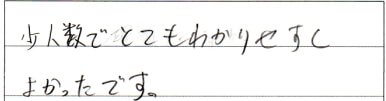 少人数でとてもわかりやすく
よかったです。